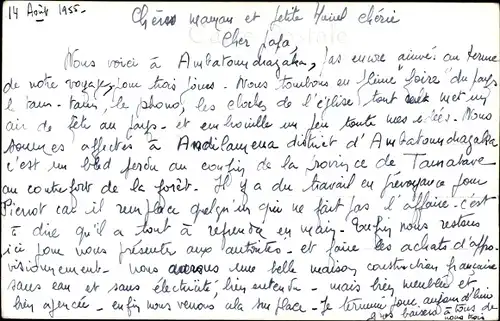 14 Août 1955-
Chère maman et petite Muriel chérie
Cher Papa
Nous voici à Ambatondrazaka, pas encore arrivés au terme
de notre voyage, pour trois jours. Nous tombons en pleine "foire" du pays
le tam-tam, le phono, les cloches de l'église, tout met un
air de fête au pays - et embrouille un peu toutes mes idées. Nous
sommes affectés à Andilamena district d'Ambatondrazaka
c'est un bled perdu au confin de la province de Tamatave
au contrefort de la forêt. Il y a du travail en prévoyance pour
Pierrot car il remplace quelqu'un qui ne fait pas l'affaire. c'est-
à dire qu'il a tout à reprendre en main. Enfin nous restons
ici pour nous présenter aux autorités - et faire les achats d'appro-
visionnement - nous aurons une belle maison construction française
sans eau et sans électricité, bien entendu - mais bien meublée et
bien agencée - enfin nous verrons cela sur place - Je termine pour aujourd'hui
gros baisers à tous de
nous trois